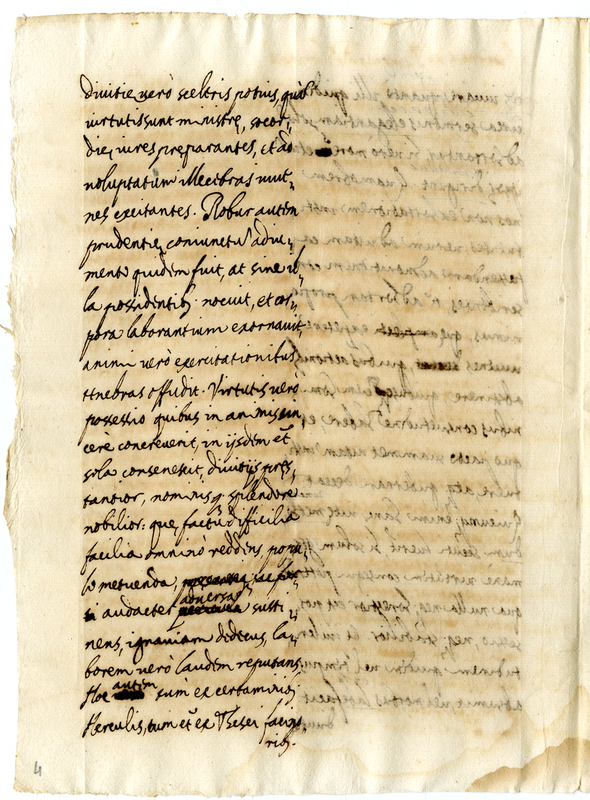 divitię verò sceleris potius, quã
virtutis sunt ministrę, socor-
dię vires pręparantes, et ad
voluptatum illecebras iuve-
nes excitantes. Robur autem
prudentię coniunctũ adiu-
mento quidem fuit, at sine il-
la possidentib9 nocuit, et cor-
pora laborantium exornavit,
animi verò exercitationibus
tenebras offudit. Virtutis verò
possessio quibus in animis sin
cerè concrevit, in ijsdem et
sola consenescit, divitijs pręs-
tantior, nominisq splendore
nobilior: que factu difficilia
facilia omninò reddens,
metuenda,
audacter adversa susti-
nens, ignaviam dedecus, la-
borem verò laudem reputans.
Hoc autem cùm ex certaminib9
Herculis, tum et ex Thesei facino
rib9.
4